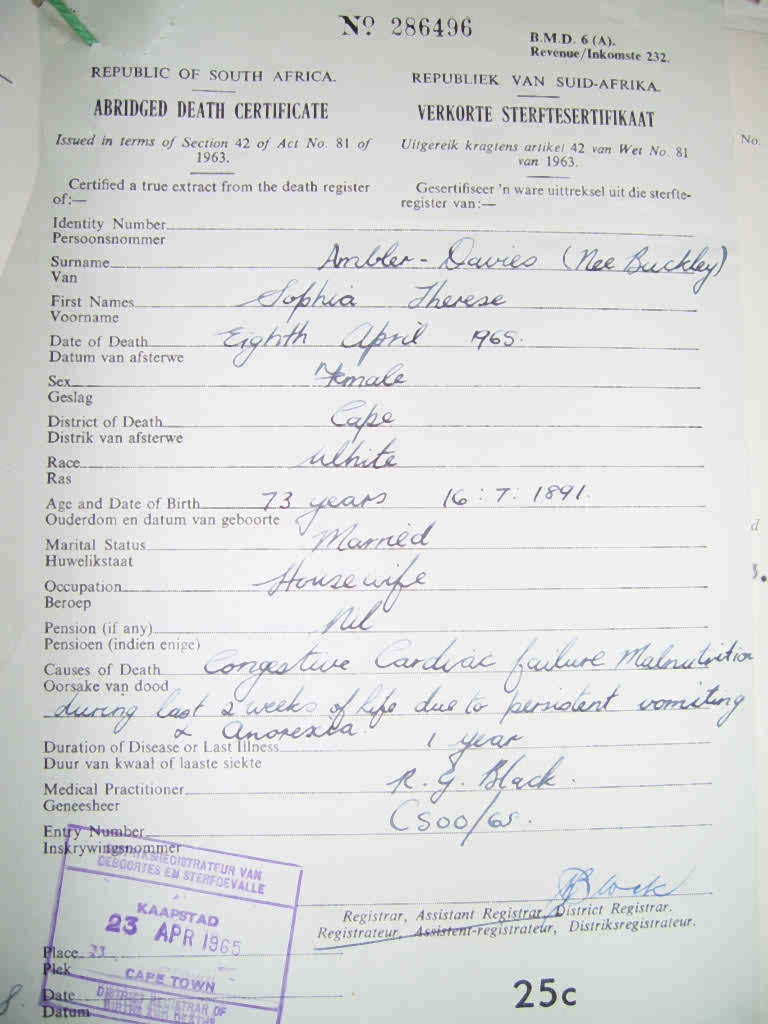 No 286496
B.M.D. 6 (A).
Revenue/Inkomste 232.
REPUBLIC OF SOUTH AFRICA.
REPUBLIEK VAN SUID-AFRIKA.
ABRIDGED DEATH CERTIFICATE
VERKORTE STERFTESERTIFIKAAT
Issued in terms of Section 42 of Act No. 81 of
1963.
Uitgereik kragtens artikel 42 van Wet No. 81
van 1963.
No.
Certified a true extract from the death register
of:—
Gesertifiseer 'n ware uittreksel uit die sterfte-
register van:—
Identity Number
Persoonsnommer
Surname Ambler-Davies (Nee Buckley)
Van
First Names Sophia Therese
Voorname
Date of Death Eighth April 1965.
Datum van afsterwe
Sex Female
Geslag
District of Death Cape
Distrik van afsterwe
Race White
Ras
Age and Date of Birth 73 years 16:7:1891.
Ouderdom en datum van geboorte
Marital Status Married
Huwelikstaat
Occupation Housewife
Beroep
Pension (if any) Nil
Pensioen (indien enige)
Causes of Death Congestive Cardiac failure Malnutrition
Oorsake van dood
during last 2 weeks of life due to persistent vomiting
& Anorexia.
Duration of Disease or Last Illness 1 year
Duur van kwaal of laaste siekte
Medical Practitioner R. G. Black.
Geneesheer
Entry Number C500/65.
Inskrywingsnommer
DISTRIKSREGISTRATEUR VAN
GEBOORTES EN STERFGEVALLE
KAAPSTAD
23 APR 1965
CAPE TOWN
DISTRICT REGISTRAR OF
BIRTHS AND DEATHS
Registrar, Assistant Registrar, District Registrar.
Registrateur, Assistent-registrateur, Distriksregistrateur.
Place
Plek
Date
Datum
25c